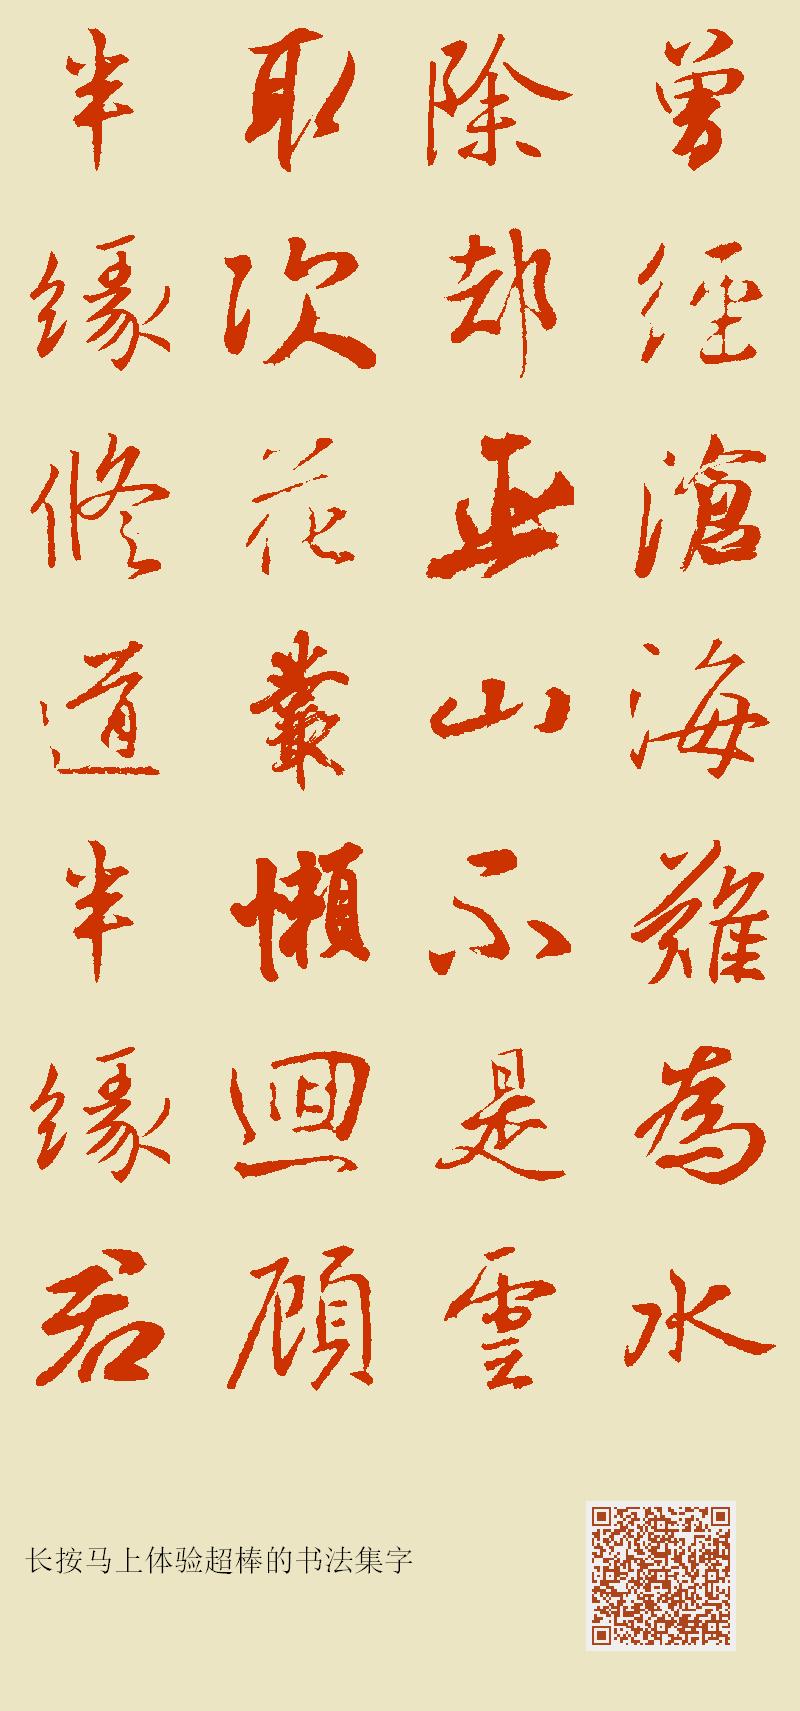 曾經滄海難為水
除却巫山不是雲
取次花叢懶迴顧
半緣修道半緣君
长按马上体验超棒的书法集字